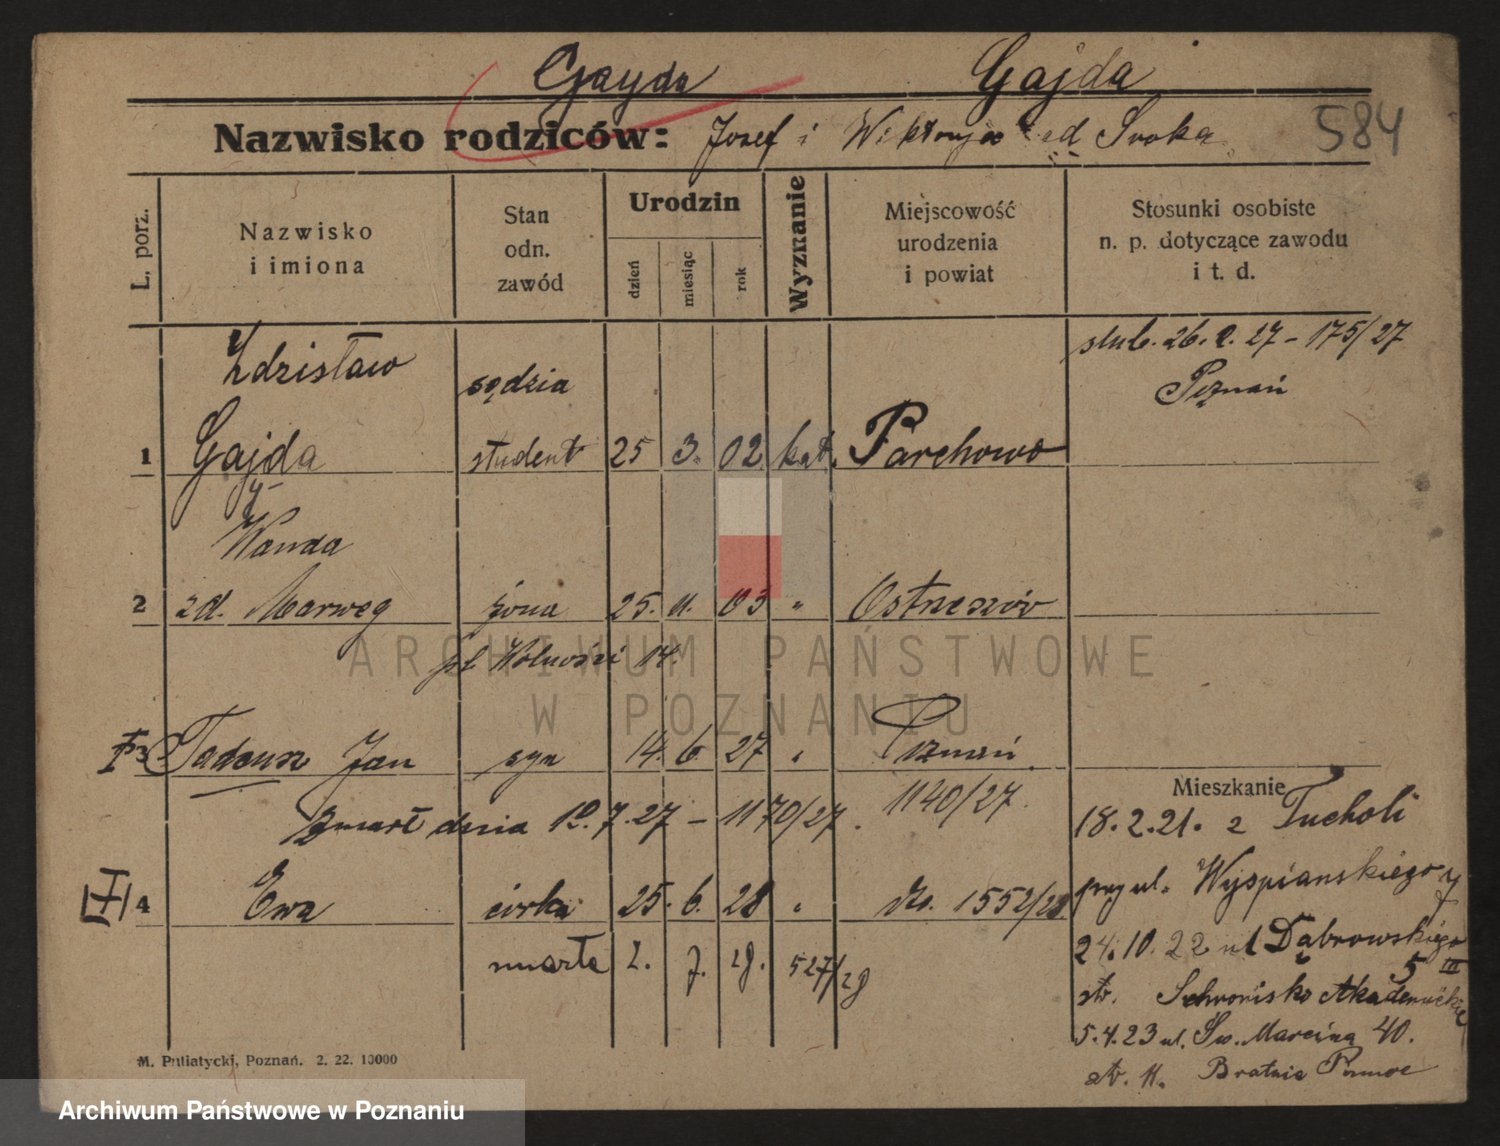 Gayda Gajda
Nazwisko rodziców: Josef i Wiktorya Sroka
584
L. porz.
Nazwisko i imiona
Stan odn. zawód
Urodzin
dzień miesiąc rok
Wyznanie
Miejscowość urodzenia i powiat
Stosunki osobiste n. p. dotyczące zawodu i t. d.
Zdzisław sędzia
ślub. 26. 2. 27 - 175/27
Poznań
1 Gajda student 25 3. 02 kat. Parchowo
Wanda
2 zd. Marweg żona 25. 11. 03 " Ostrzeszów
pl. Wolności 14.
3 Tadeusz Jan syn 14. 6. 27 " Poznań
1140/27.
zmarł dnia 10. 7. 27 - 1170/27.
Mieszkanie
18. 2. 21. z Tucholi
4 Ewa córka 25. 6. 28 " 1552/28
przy ul. Wyspiańskiego
zmarła 2. 7. 28. 527/28
24. 10. 22 ul Dąbrowskiego
5 III
str. Schronisko Akademickie
5. 4. 23 ul. Św. Marcina 40.
str. 11. Bratnia Pomoc
M. Putiatycki, Poznań. 2. 22. 10000
ARCHIWUM PAŃSTWOWE
W POZNANIU
Archiwum Państwowe w Poznaniu